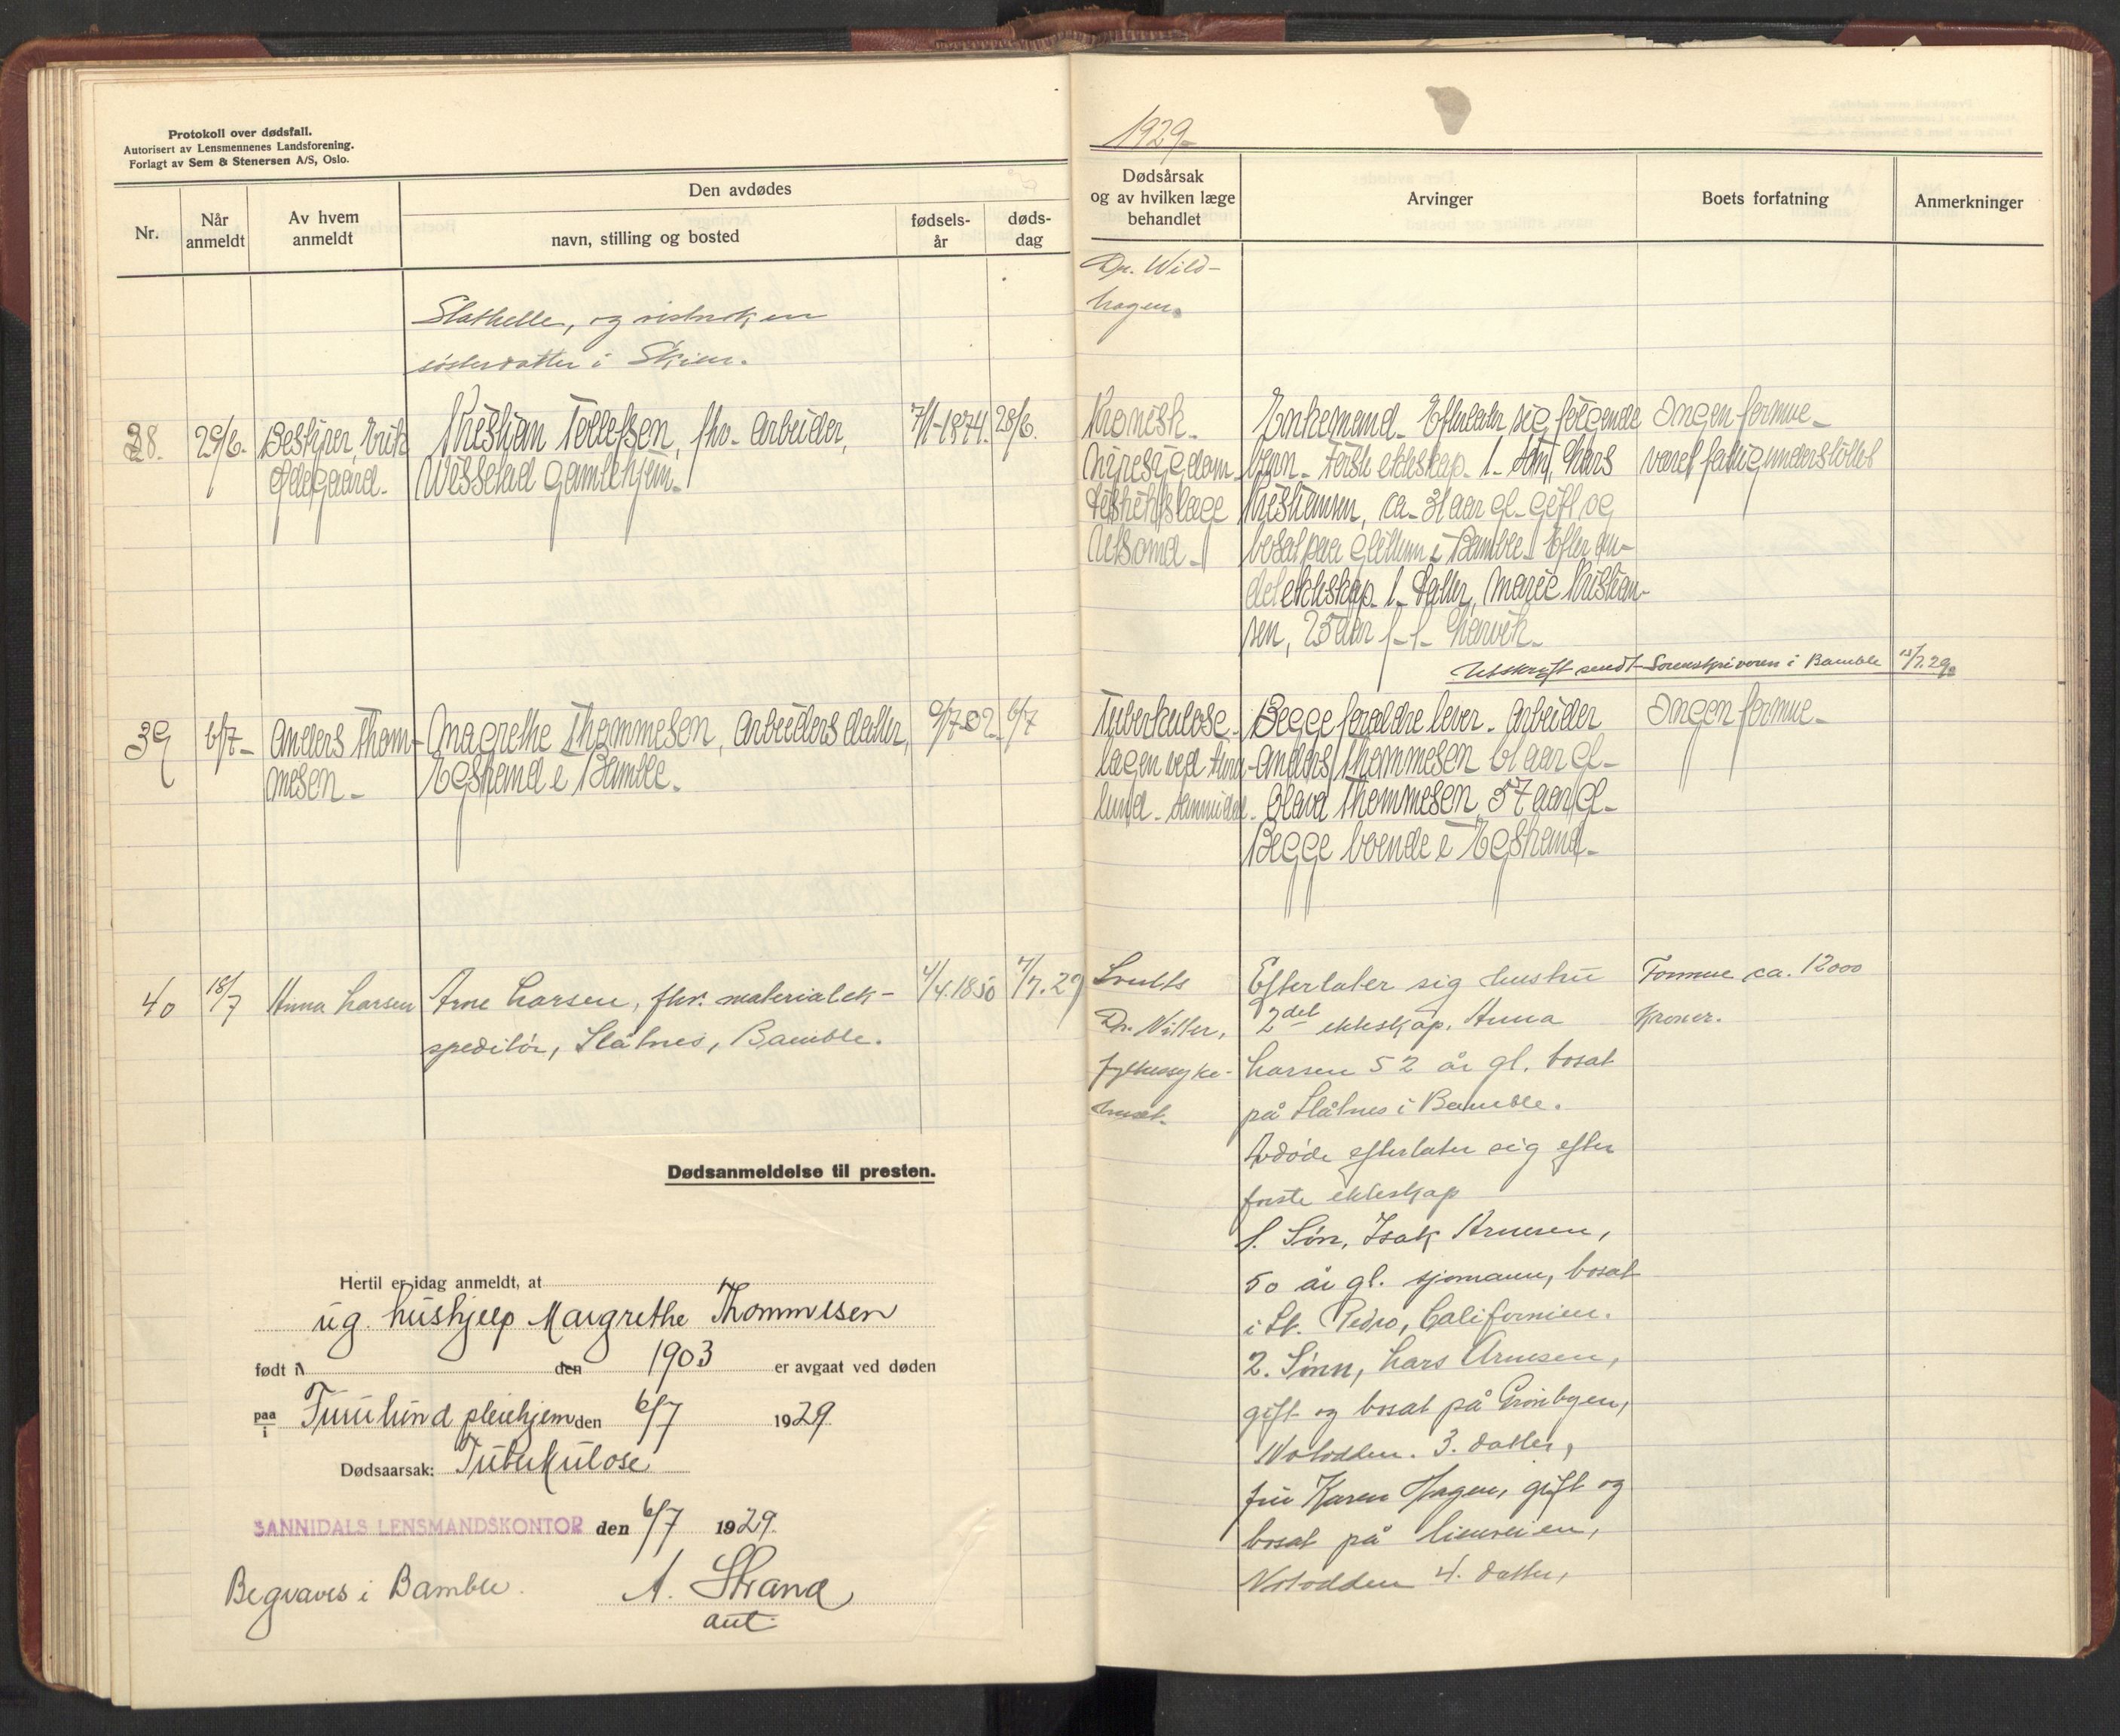 Protokoll over dødsfall.
Autorisert av Lensmennenes Landsforening.
Forlagt av Sem & Stenersen A/S, Oslo.
Nr.
Når anmeldt
Av hvem anmeldt
Den avdødes
navn, stilling og bosted
fødsels-år
døds-dag
Stathelle, og vistnok en
søsterdatter i Skien.
38.
29/6.
Bestyrer, Erik
Ødegaard.
Kristian Tollefsen, fhv. arbeider,
Wissestad Gamlehjem.
7/1-1874.
28/6.
39
6/7-
Anders Thom-
mesen-
Magrethe Thommesen, arbeiders datter,
Egstrand i Bamble.
9/7-02-
6/7
40
18/7
Anna Larsen
Arne Larsen, fhv. materialek-
speditør, Slåtnes, Bamble.
4/4.1850
7/7.29
Dødsanmeldelse til presten.
Hertil er idag anmeldt, at
ug. hushjelp Margrethe Thommesen
født i den 1903 er avgaat ved døden
paa
i Furulund pleiehjem den 6/7 1929.
Dødsaarsak: Tuberkulose
SANNIDALS LENSMANDSKONTOR den 6/7 1929.
Begraves i Bamble.
A. Strand
aut.
1929-
Dødsårsak
og av hvilken læge
behandlet
Arvinger
Boets forfatning
Anmerkninger
Dr. Wild-
hagen.
Kronisk-
nyresygdom-
distriktslæge
Enkemand- Efterlater sig følgende
barn- Første ekteskap- 1- Søn, Lars
Kristiansen, ca- 31 aar gl- gift og
bosat paa i Bamble- Efter an-
det ekteskap- 1- datter, Marie Kristian-
sen, 25 aar f-f- Larvik-
Ingen formue-
været fattigunderstöttet
Utskrift sendt Sorenskriveren i Bamble 13/7.29.
Tuberkulose-
lægen ved Furu-
lund- Sannidal-
Begge foraldre lever- Arbeider
Anders Thommesen 61 aar gl-
Olava Thommesen, 57 aar gl-
Begge boende i Egstrand-
Ingen formue-
Dr. Nilter,
fylkessyke-
huset.
Efterlater sig hustru
2det ekteskap, Anna
Larsen 52 år gl. bosat
på Slåtnes i Bamble.
Avdøde efterlater sig efter
første ekteskap
1. Søn, Isak Arnesen,
50 år gl. sjømann, bosat
i St. Pedro, Californien.
2. Sønn, Lars Arnesen,
gift og bosat på Grønbyen,
Notodden. 3. datter,
fru Karen Hagen, gift og
bosat på Lienveien,
Notodden 4. datter,
Formue ca. 12000
Kroner.